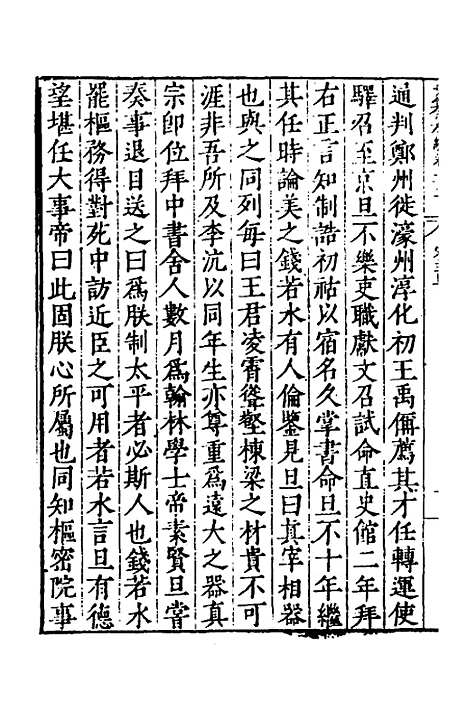 通判鄭州徙濠州淳化初王禹偁薦其才任轉運使
驛召至京旦不樂吏職獻文召試命直史館二年拜
右正言知制誥初祜以宿名久掌書命旦不十年繼
其任時論美之錢若水有人倫鑒見旦曰真宰相器
也與之同列每曰王君凌霄聳壑棟梁之材貴不可
涯非吾所及李沆以同年生亦尊重為遠大之器真
宗卽位拜中書舍人數月為翰林學士帝素賢旦嘗
奏事退目送之曰為朕制太平者必斯人也錢若水
罷樞務得對死中訪近臣之可用者若水言旦有德
望堪任大事帝曰此固朕心所屬也同知樞密院事